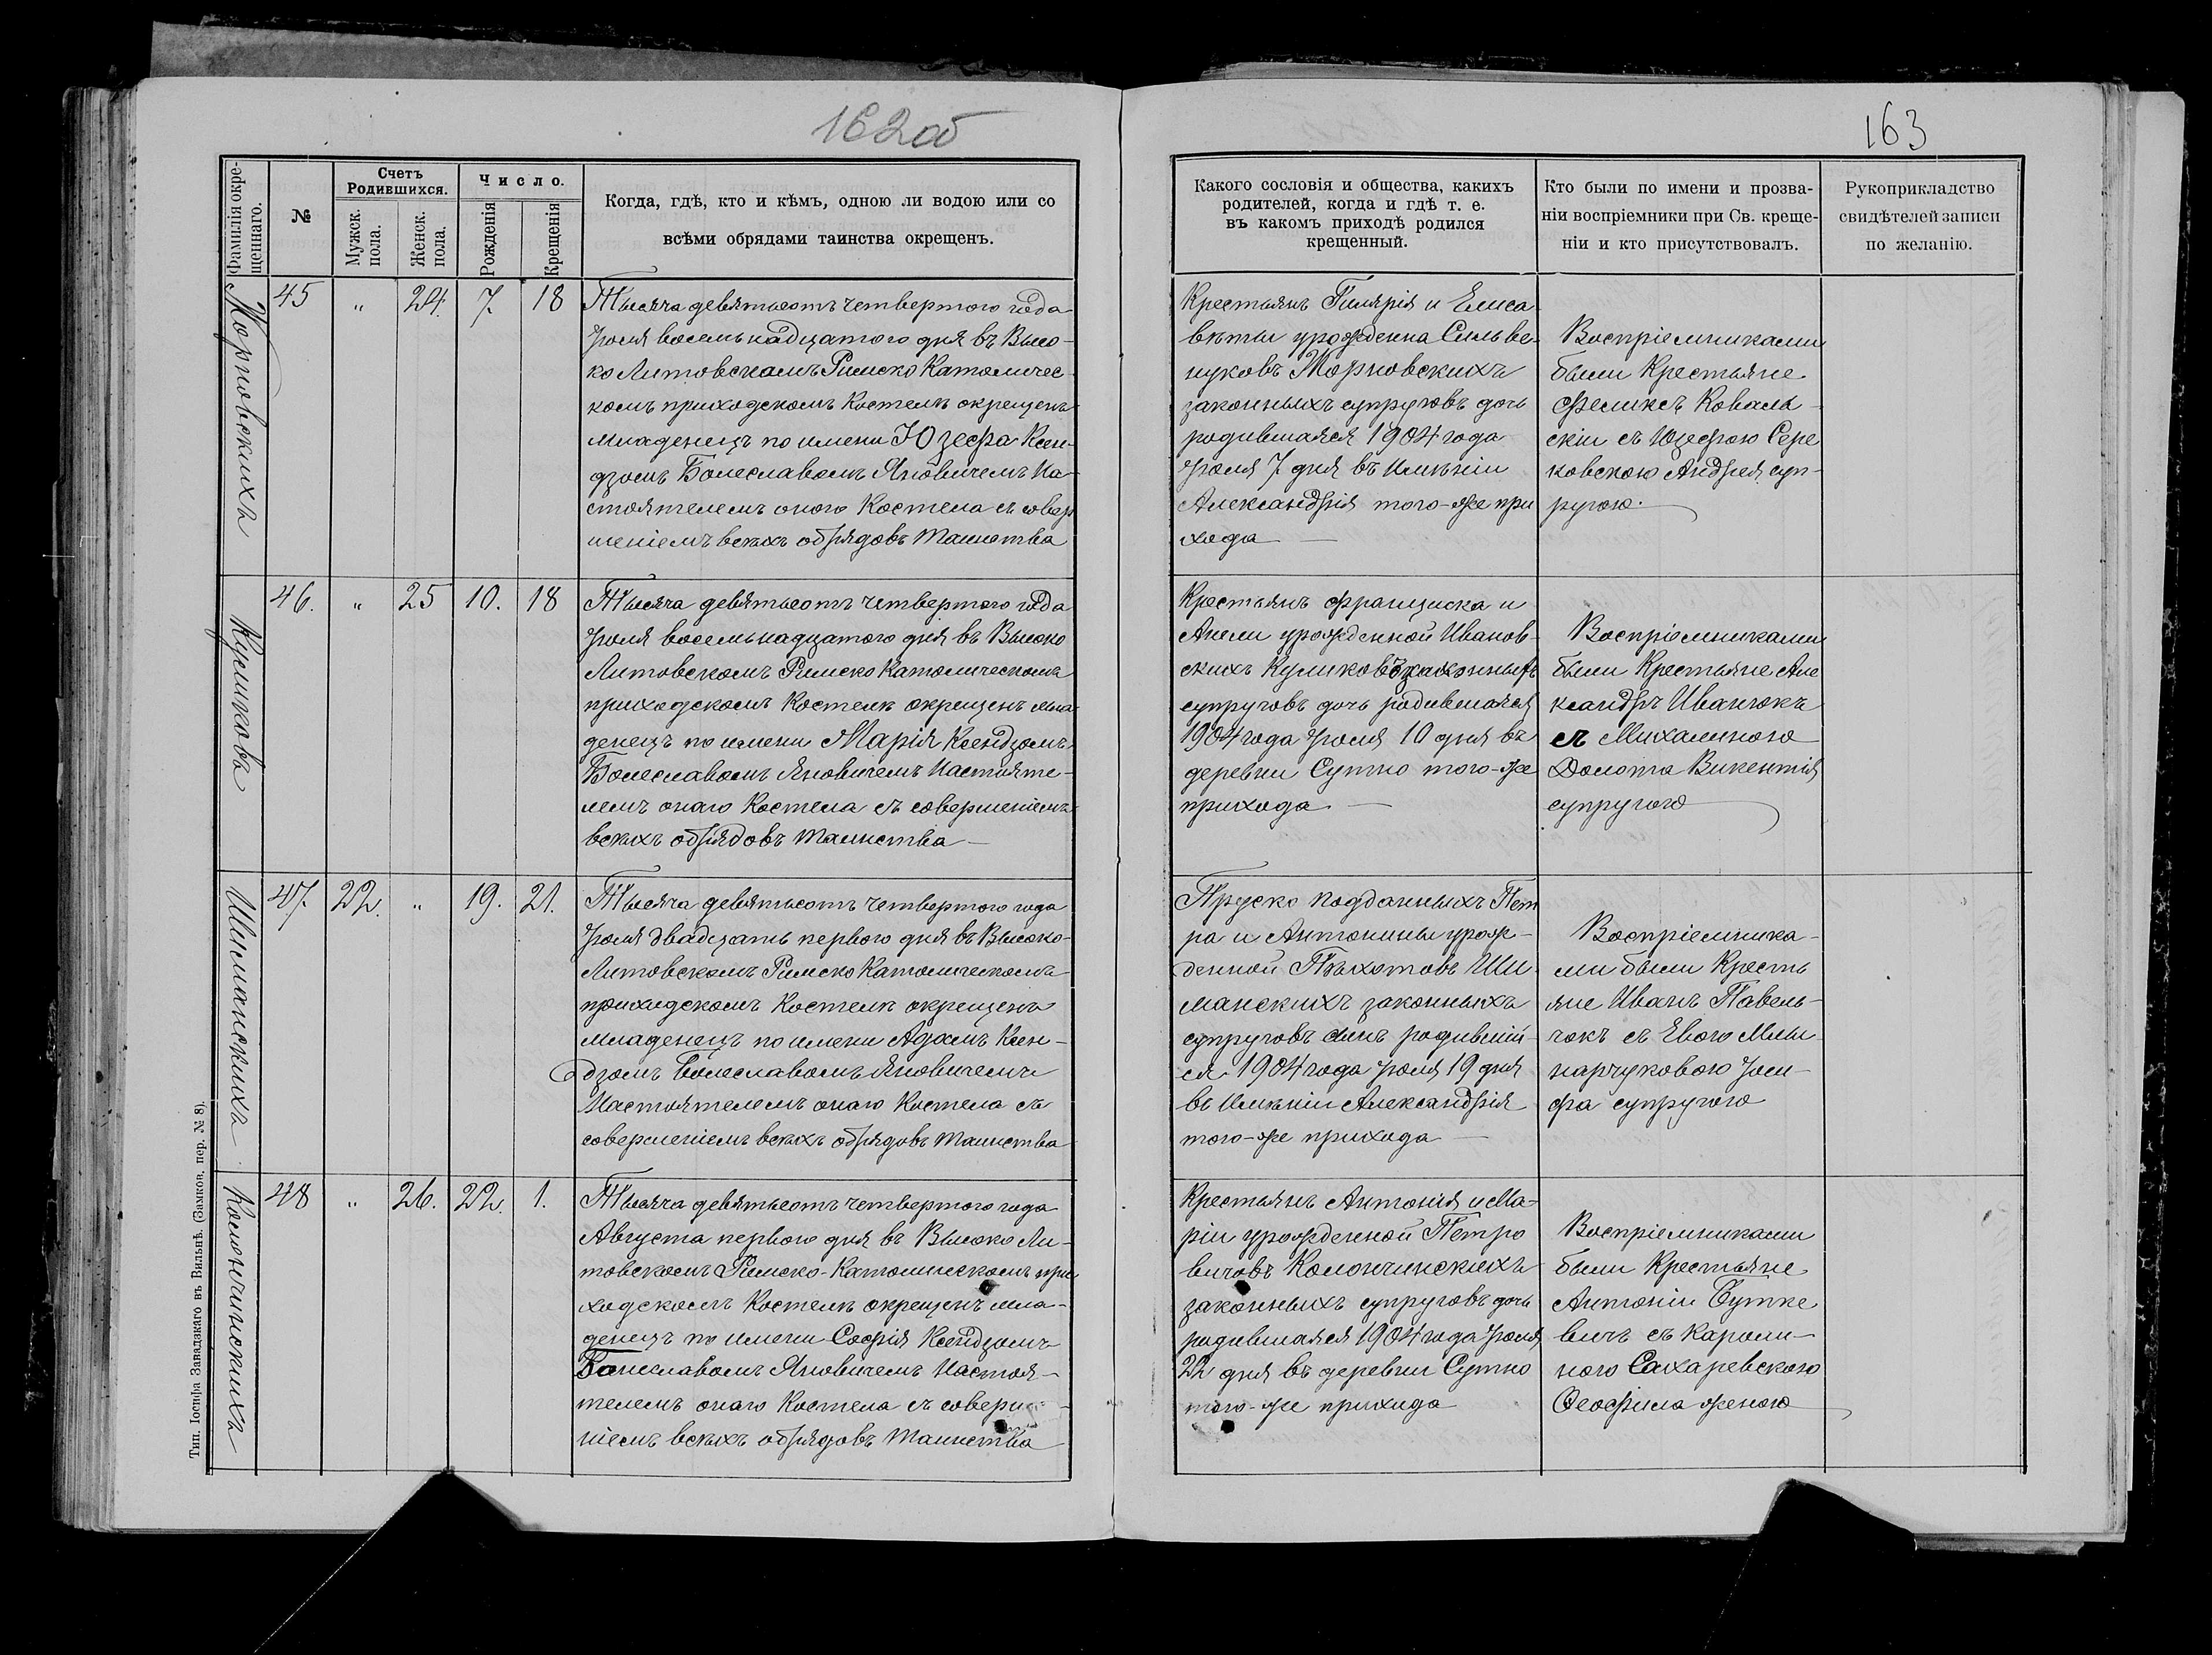 162об
163
Фамилія окре-
щеннаго.
№
Счетъ
Родившихся.
Мужск.
пола.
Женск.
пола.
Число.
Рожденія
Крещенія
Когда, гдѣ, кто и кѣмъ, одною ли водою или со
всѣми обрядами таинства окрещенъ.
Какого сословія и общества, какихъ
родителей, когда и гдѣ т. е.
въ какомъ приходѣ родился
крещенный.
Кто были по имени и прозва-
ніи воспріемники при Св. креще-
ніи и кто присутствовалъ.
Рукоприкладство
свидѣтелей записи
по желанію.
45 " 24. 7. 18
Тысяча девятьсотъ четвертого года
Іюля восемьнадцатого дня въ Высо-
ко Литовскомъ Римско Католичес-
комъ приходскомъ Костелѣ окрещенъ
младенецъ по имени Юзефа Ксен-
дзомъ Болеславомъ Яновичемъ На-
стоятелемъ оного Костела съ совер
шеніемъ всѣхъ обрядовъ Таинства
Крестьянъ Гилярія и Елиса-
вѣты урожденна Сильве-
нуковъ Жорновскихъ
законныхъ супруговъ дочь
родившаяся 1904 года
Іюля 7 дня въ Имѣніи
Александрія того-же при
хода
Воспріемниками
были Крестьяне
Феликсъ Коваль-
скіи съ Юзефою Сере
ковскою Андрея суп-
ругою.
Куликова
46. " 25 10. 18
Тысяча девятьсотъ четвертого года
Іюля восемьнадцатого дня въ Высоко
Литовскомъ Римско Католическомъ
приходскомъ Костелѣ окрещенъ мла-
денецъ по имени Марія Ксендзомъ
Болеславомъ Яновичемъ Настояте-
лемъ онаго Костела съ совершеніемъ
всѣхъ обрядовъ Таинства
Крестьянъ Франциска и
Анели урожденной Иванов-
скихъ Куликовъ законныхъ
супруговъ дочь родившаяся
1904 года Іюля 10 дня въ
деревни Сутно того-же
прихода
Воспріемниками
были Крестьяне Але
ксандръ Иванюкъ
съ Михалиною
Долота Викентія
супругою
Шиманскихъ
47. 22. " 19. 21.
Тысяча девятьсотъ четвертого года
Іюля двадцать первого дня въ Высоко-
Литовскомъ Римско Католическомъ
приходскомъ Костелѣ окрещенъ
младенецъ по имени Адамъ Ксен-
дзомъ Болеславомъ Яновичемъ
Настоятелемъ онаго Костела съ
совершеніемъ всѣхъ обрядовъ Таинства
Пруско подданныхъ Пет
ра и Антонины урож-
денной Пѣхотовъ Ши-
манскихъ законныхъ
супруговъ сынъ родившій-
ся 1904 года Іюля 19 дня
въ Имѣніи Александрія
того-же прихода
Воспріемника-
ми были Кресть
яне Иванъ Павель-
чокъ съ Евою Мли
нарчуковою Іоси-
фа супругою
Колончинскихъ
48 " 26. 22. 1.
Тысяча девятьсотъ четвертого года
Августа первого дня въ Высоко Ли-
товскомъ Римско-Католическомъ при
ходскомъ Костелѣ окрещенъ мла-
денецъ по имени Софія Ксендзомъ
Болеславомъ Яновичемъ Настоя-
телемъ онаго Костела съ соверше-
ніемъ всѣхъ обрядовъ Таинства
Крестьянъ Антонія и Ма-
ріи урожденной Петро
вичовъ Колончинскихъ
законныхъ супруговъ дочь
родившаяся 1904 года Іюля
22 дня въ деревни Сутно
того-же прихода
Воспріемниками
были Крестьяне
Антоніи Бутке
вичъ съ Кароли-
ною Сахаревскою
Ѳеофила женою
Жорновскихъ
Тип. Іосифа Завадзкаго въ Вильнѣ. (Замков. пер. № 8).